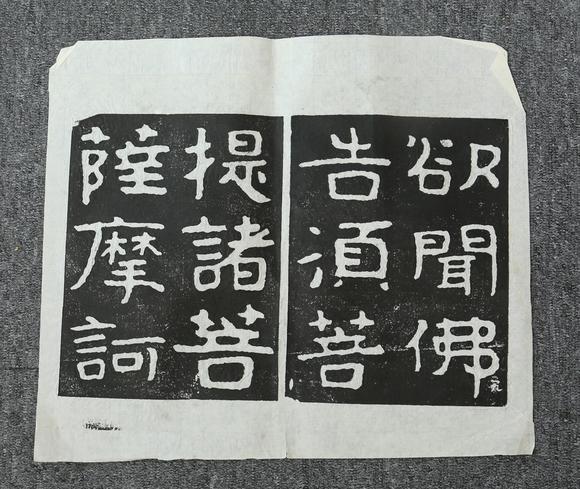 欲聞佛
告須菩
提諸菩
薩摩訶